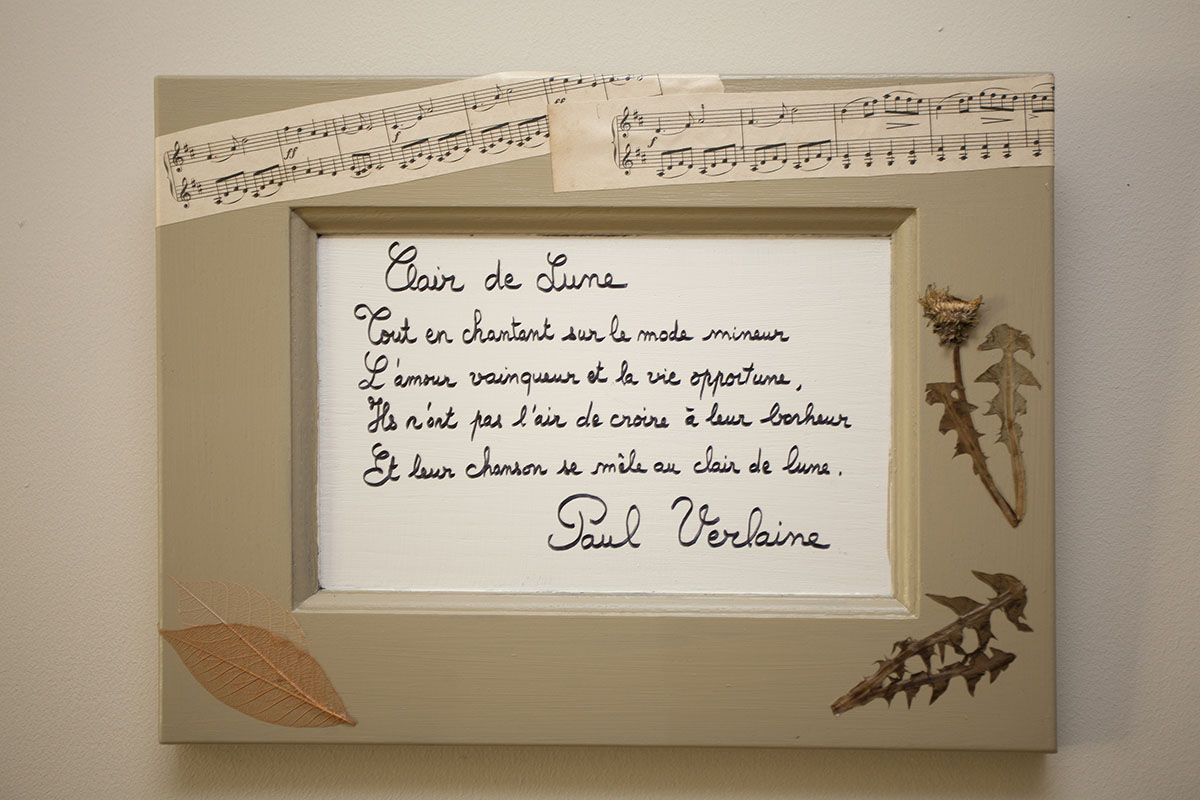 Clair de Lune
Tout en chantant sur le mode mineur
L'amour vainqueur et la vie opportune,
Ils n'ont pas l'air de croire à leur bonheur
Et leur chanson se mêle au clair de lune.
Paul Verlaine